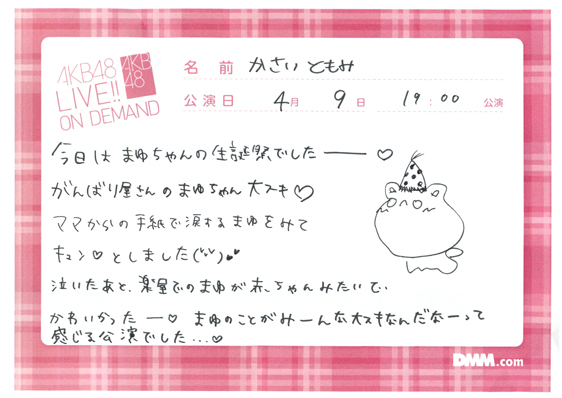 AKB48
LIVE!!
ON DEMAND
AKB
48
名前 かさいともみ
公演日 4月 9日 19:00 公演
今日は まゆちゃんの生誕祭でしたーー♡
がんばり屋さんのまゆちゃん大スキ♡
ママからの手紙で涙するまゆをみて
キュン♡としました
泣いたあと、楽屋でのまゆが赤ちゃんみたいで、
かわいかったー♡ まゆのことがみーんな大スキなんだなーって
感じる公演でした...♡
DMM.com